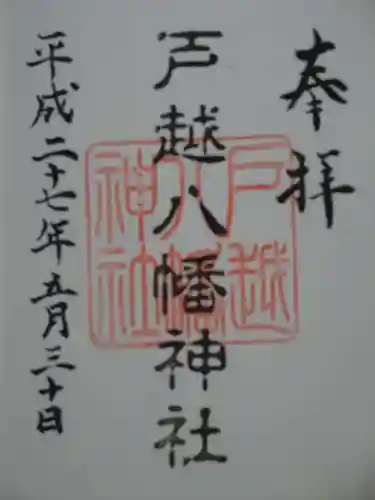 奉拝
戸越八幡神社
戸越八幡神社
平成二十七年五月三十日